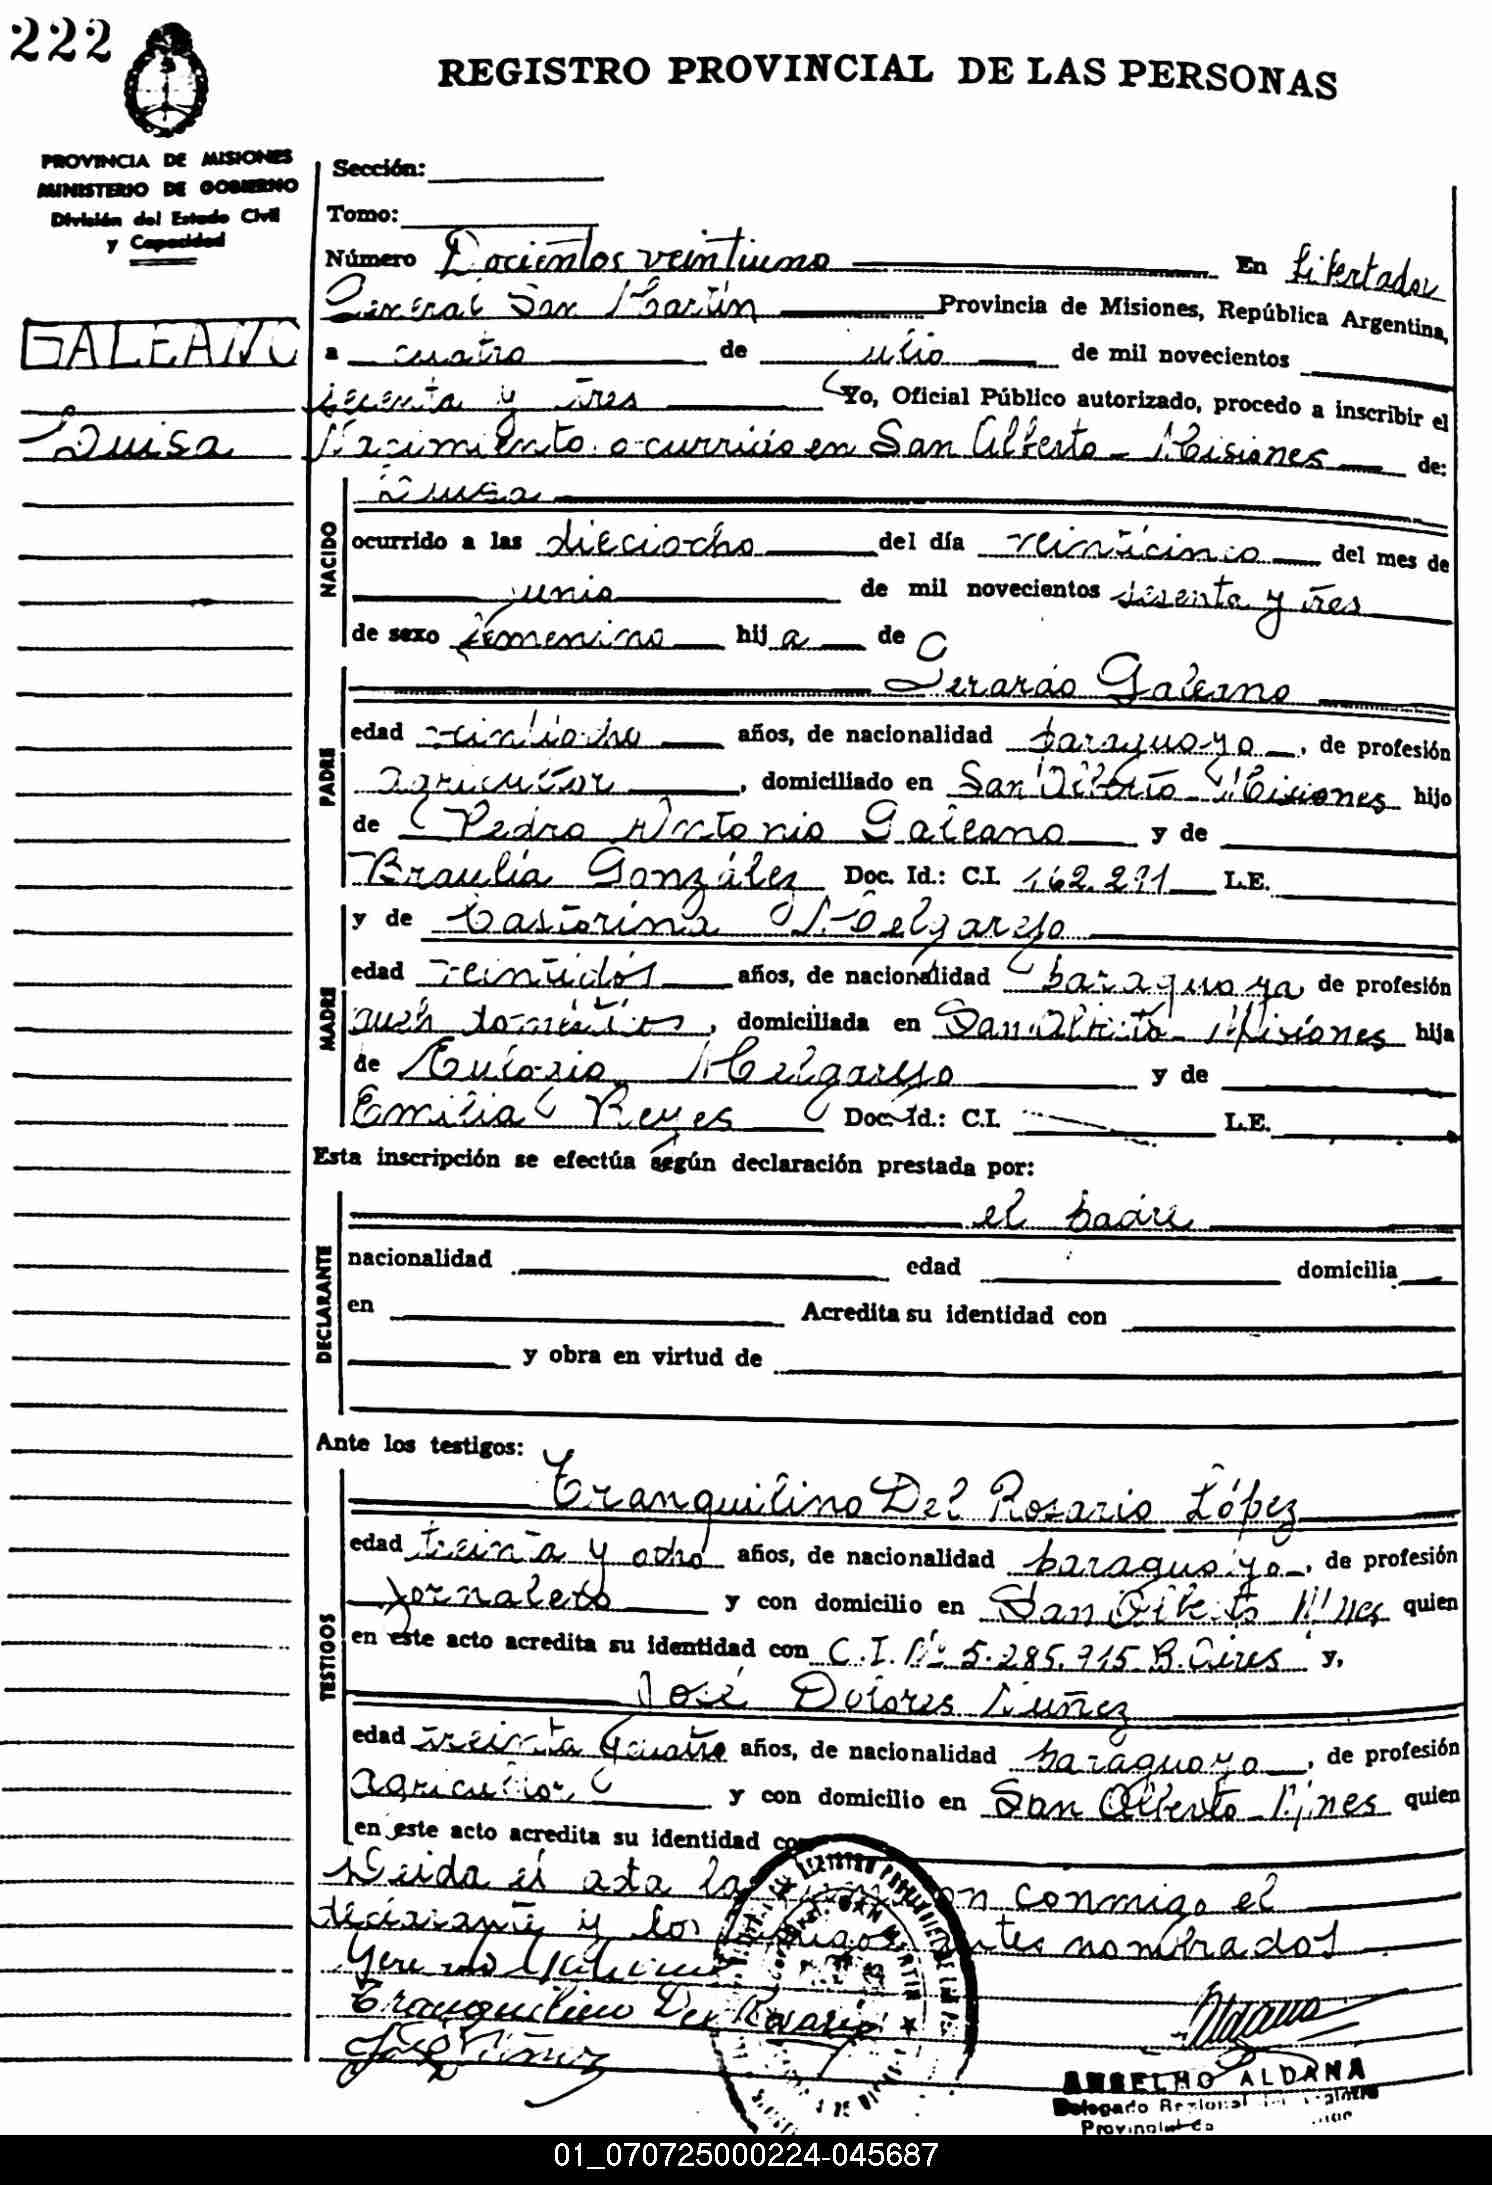 222
REGISTRO PROVINCIAL DE LAS PERSONAS
PROVINCIA DE MISIONES
MINISTERIO DE GOBIERNO
División del Estado Civil
y Capacidad
Sección:
Tomo:
Número Docientos veintiuno En Libertador
General San Martín Provincia de Misiones, República Argentina,
GALEANO
a cuatro de julio de mil novecientos
sesenta y tres Yo, Oficial Público autorizado, procedo a inscribir el
Luisa
Nacimiento ocurrido en San Alberto - Misiones de:
NACIDO
Luisa
ocurrido a las dieciocho del día veinticinco del mes de
junio de mil novecientos sesenta y tres
de sexo femenino hija de
PADRE
Gerardo Galeano
edad veintiocho años, de nacionalidad paraguayo, de profesión
agricultor, domiciliado en San Alberto - Misiones hijo
de Pedro Antonio Galeano y de
Braulia González Doc. Id.: C.I. 162.291 L.E.
MADRE
y de Castorina Melgarejo
edad veintidós años, de nacionalidad paraguaya de profesión
queh domésticos, domiciliada en San Alberto - Misiones hija
de Eulogio Melgarejo y de
Emilia Reyes Doc. Id.: C.I. L.E.
Esta inscripción se efectúa según declaración prestada por:
DECLARANTE
el padre
nacionalidad edad domicilia
en Acredita su identidad con
y obra en virtud de
Ante los testigos:
TESTIGOS
Tranquilino Del Rosario López
edad treinta y ocho años, de nacionalidad paraguayo, de profesión
jornalero y con domicilio en San Alberto Mnes quien
en este acto acredita su identidad con C.I. Nº 5.285.915 B. Aires y,
José Dolores Nuñez
edad treinta y cuatro años, de nacionalidad paraguayo, de profesión
agricultor y con domicilio en San Alberto - Mnes quien
en este acto acredita su identidad con
Leida el acta la firman conmigo el
declarante y los testigos antes nombrados
Tranquilino Del Rosario
José Núñez
ANSELMO ALDANA
Delegado Regional del Registro
Provincial de
01_070725000224-045687